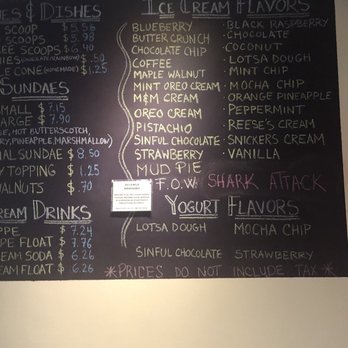 ES & DISHES
SCOOP $ 5.56
SCOOPS $ 5.95
EE SCOOPS $ 6.40
MIES (CHOCOLATE/RAINBOW) $ .50
LE CONE (HOMEMADE) $1.25
SUNDAES
MALL $ 7.15
ARGE $ 7.90
SE, HOT BUTTERSCOTCH,
RRY, PINEAPPLE, MARSHMALLOW)
IAL SUNDAE $ 8.50
Y TOPPING $ 1.25
ALNUTS $ .70
REAM DRINKS
PPE $ 7.24
PE FLOAT $ 7.76
EAM SODA $ 6.26
EAM FLOAT $ 6.26
ICE CREAM FLAVORS
BLUEBERRY
BUTTER CRUNCH
CHOCOLATE CHIP
COFFEE
MAPLE WALNUT
MINT OREO CREAM
M&M CREAM
OREO CREAM
PISTACHIO
SINFUL CHOCOLATE
STRAWBERRY
MUD PIE
F.O.W SHARK ATTACK
· BLACK RASPBERRY
· CHOCOLATE
· COCONUT
· LOTSA DOUGH
· MINT CHIP
· MOCHA CHIP
· ORANGE PINEAPPLE
· PEPPERMINT
· REESE'S CREAM
· SNICKERS CREAM
· VANILLA
YOGURT FLAVORS
LOTSA DOUGH MOCHA CHIP
SINFUL CHOCOLATE STRAWBERRY
*PRICES DO NOT INCLUDE TAX*